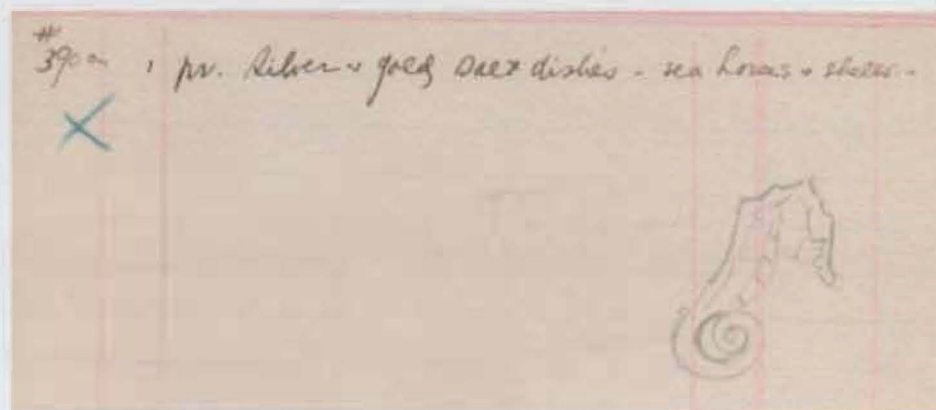 #
390— 1 pr. Silver + gold Salt dishes - sea horses + shells -
X